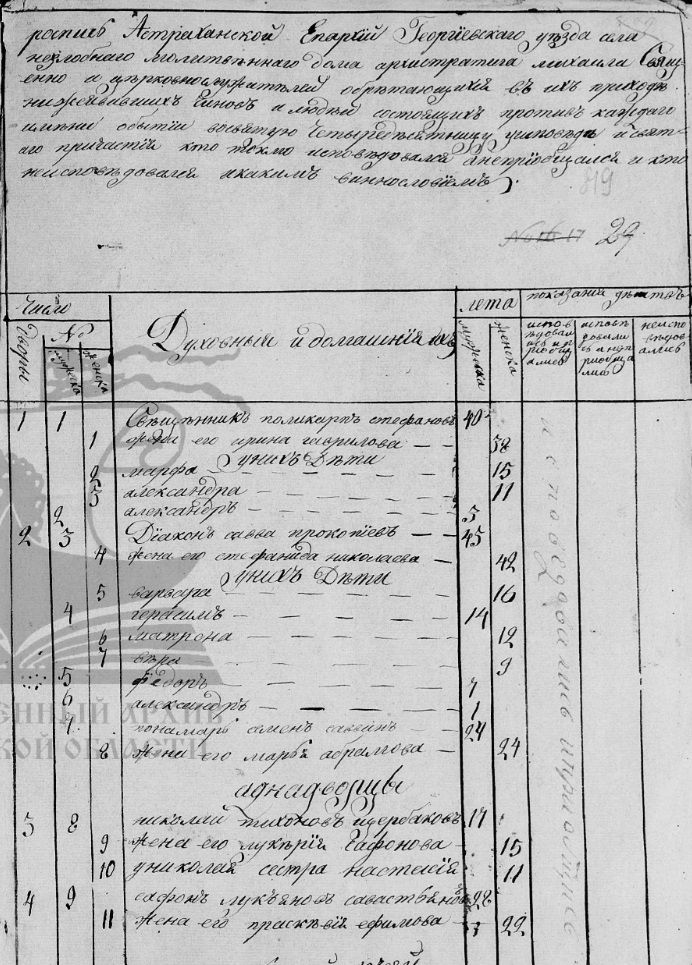 роспись Астраханской Епархий Георгiевскаго уѣзда села
незлобнаго молитвеннаго дома архистратига михаила Свящ
енно и церковнослужителей обрѣтающихся въ ихъ приходѣ
нижеявившихъ чиновъ и людѣй состоящихъ противъ каждаго
имѣни обытiи восвятую Четыредесятницу уисповѣди исвят
аго причастiй кто токмо исповѣдовался анепрiобщался и кто
неисповѣдовался икакимъ виннословiемъ
819
№ 16 17 29
Число
лета
показанiя дѣйства
Дворы
№
мужеска
женска
Духовныи и домашнiя ихъ
мужеска
женска
неиспо
вѣдова
лись
1 1 Свещѣнникъ поликарпъ стефановъ 40
1 жена его ирина гаврилова — — 38
Унихъ Дѣти
2 марфа — 15
3 александра — 11
2 александръ — 5
2 3 Дiаконъ савва прокопiевъ — — 45
4 жена его стефанида николаева — 42
Унихъ Дѣти
5 варвара — 16
4 герасимъ — 14
6 матрона — 12
7 вѣра — 9
5 федоръ — 7
6 александръ — 1
7 понамарь семенъ саввинъ — 24
8 жена его марья абрамова — 24
аднадворцы
3 8 николай тихоновъ щербаковъ 17
9 жена его лукѣрiя — 15
10 униколая сестра настасiя 11
4 9 сафонъ лукьяновъ савастьяновъ 28
11 жена его прасквiя ефимова — 22
ЕННЫЙ АРХИВ
КОЙ ОБЛАСТИ